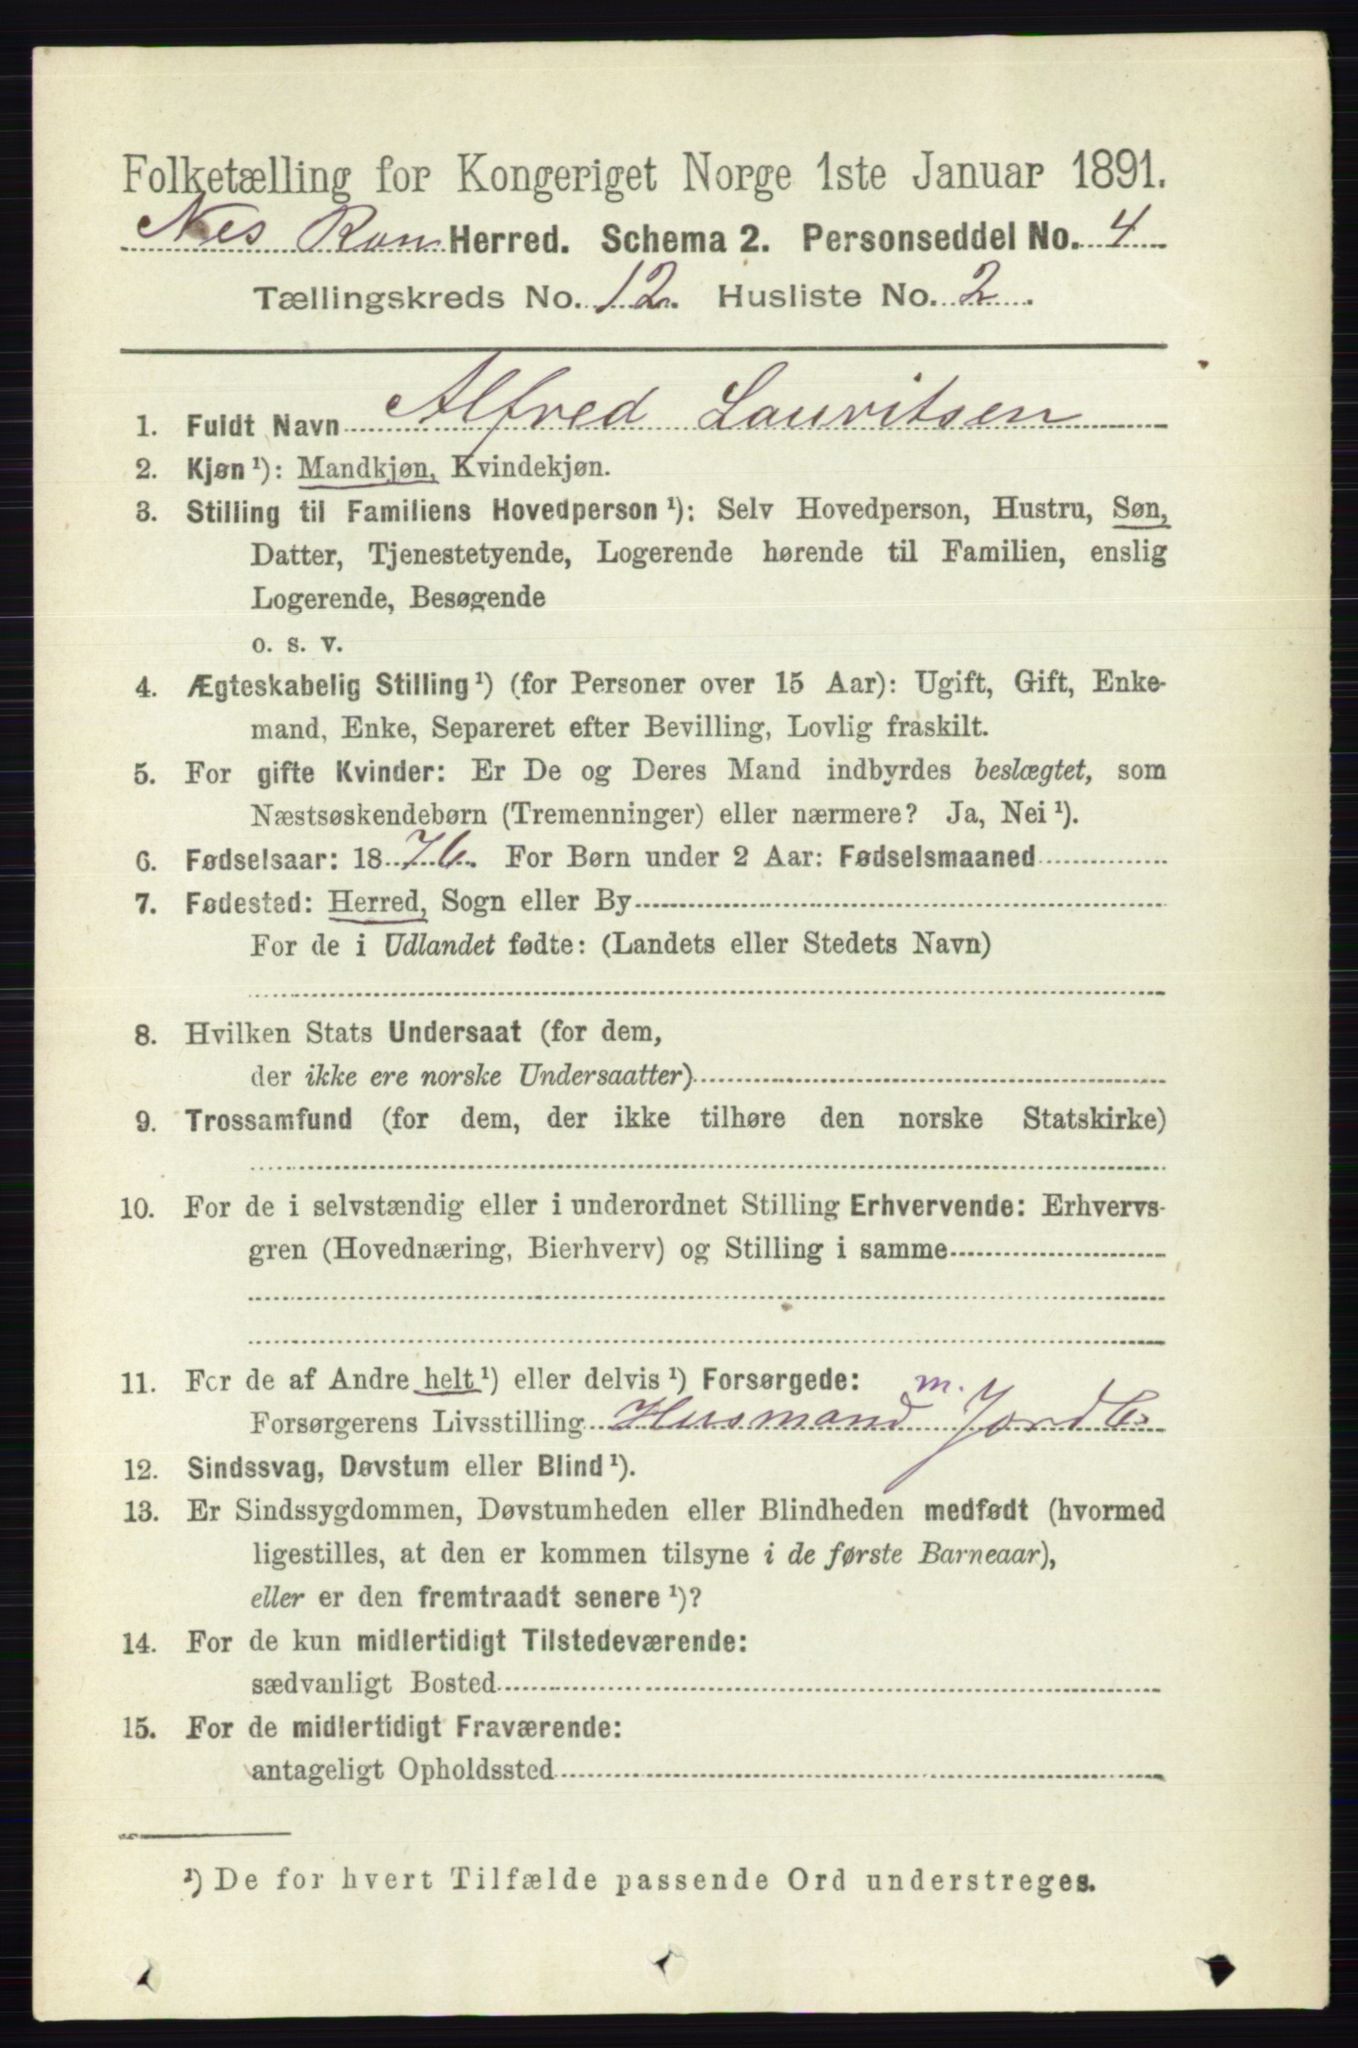 Folketælling for Kongeriget Norge 1ste Januar 1891.
Nes Rom Herred. Schema 2. Personseddel No. 4
Tællingskreds No. 12. Husliste No. 2.
1. Fuldt Navn Alfred Lauritsen
2. Kjøn ¹): Mandkjøn, Kvindekjøn.
3. Stilling til Familiens Hovedperson ¹): Selv Hovedperson, Hustru, Søn,
Datter, Tjenestetyende, Logerende hørende til Familien, enslig
Logerende, Besøgende
o. s. v.
4. Ægteskabelig Stilling ¹) (for Personer over 15 Aar): Ugift, Gift, Enke-
mand, Enke, Separeret efter Bevilling, Lovlig fraskilt.
5. For gifte Kvinder: Er De og Deres Mand indbyrdes beslægtet, som
Næstsøskendebørn (Tremenninger) eller nærmere? Ja, Nei ¹).
6. Fødselsaar: 1876. For Børn under 2 Aar: Fødselsmaaned
7. Fødested: Herred, Sogn eller By
For de i Udlandet fødte: (Landets eller Stedets Navn)
8. Hvilken Stats Undersaat (for dem,
der ikke ere norske Undersaatter)
9. Trossamfund (for dem, der ikke tilhøre den norske Statskirke)
10. For de i selvstændig eller i underordnet Stilling Erhvervende: Erhvervs-
gren (Hovednæring, Bierhverv) og Stilling i samme
11. For de af Andre helt ¹) eller delvis ¹) Forsørgede:
Forsørgerens Livsstilling Husmand m. Jord
12. Sindssvag, Døvstum eller Blind ¹).
13. Er Sindssygdommen, Døvstumheden eller Blindheden medfødt (hvormed
ligestilles, at den er kommen tilsyne i de første Barneaar),
eller er den fremtraadt senere ¹)?
14. For de kun midlertidigt Tilstedeværende:
sædvanligt Bosted
15. For de midlertidigt Fraværende:
antageligt Opholdssted
¹) De for hvert Tilfælde passende Ord understreges.